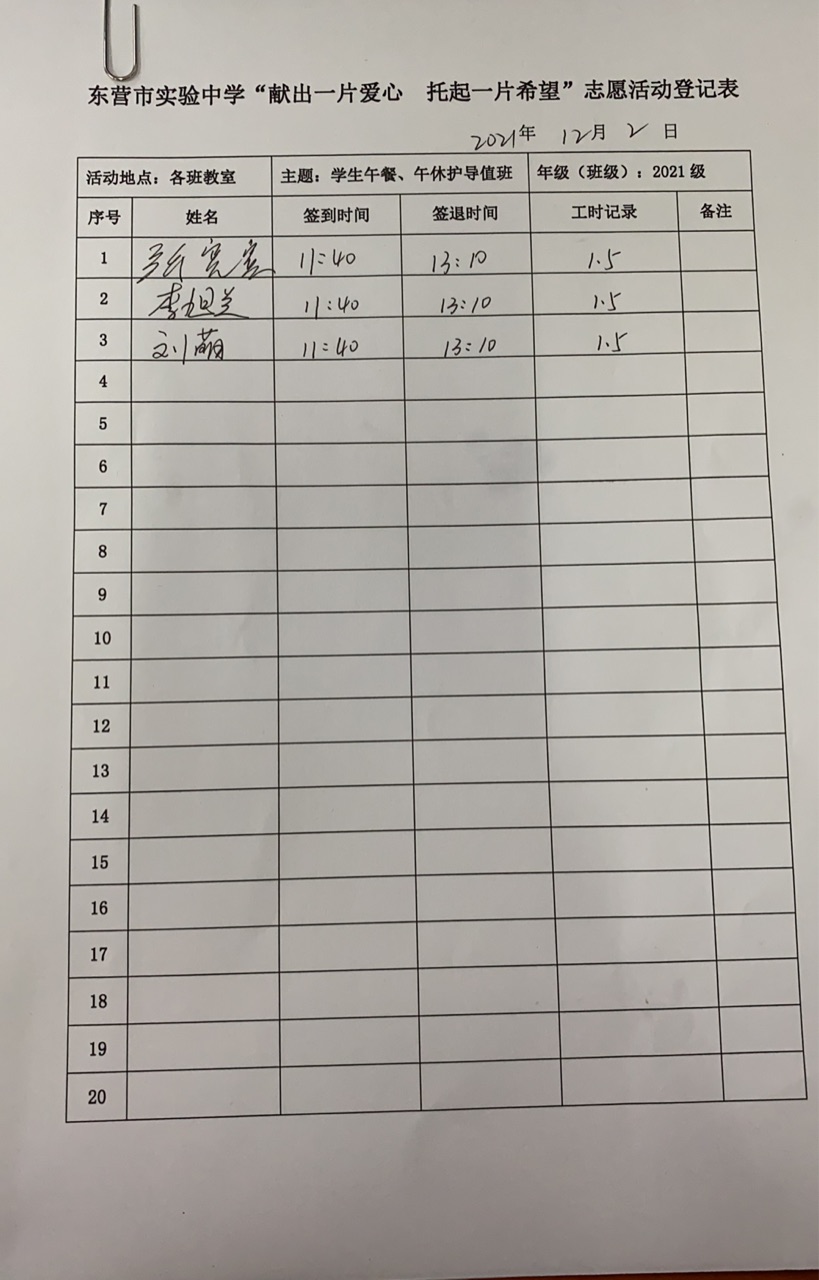 东营市实验中学“献出一片爱心 托起一片希望”志愿活动登记表
2021年 12月 2 日
活动地点：各班教室 主题：学生午餐、午休护导值班 年级（班级）：2021 级
序号 姓名 签到时间 签退时间 工时记录 备注
1 11:40 13:10 1.5
2 李旭兰 11:40 13:10 1.5
3 刘萌 11:40 13:10 1.5
4
5
6
7
8
9
10
11
12
13
14
15
16
17
18
19
20